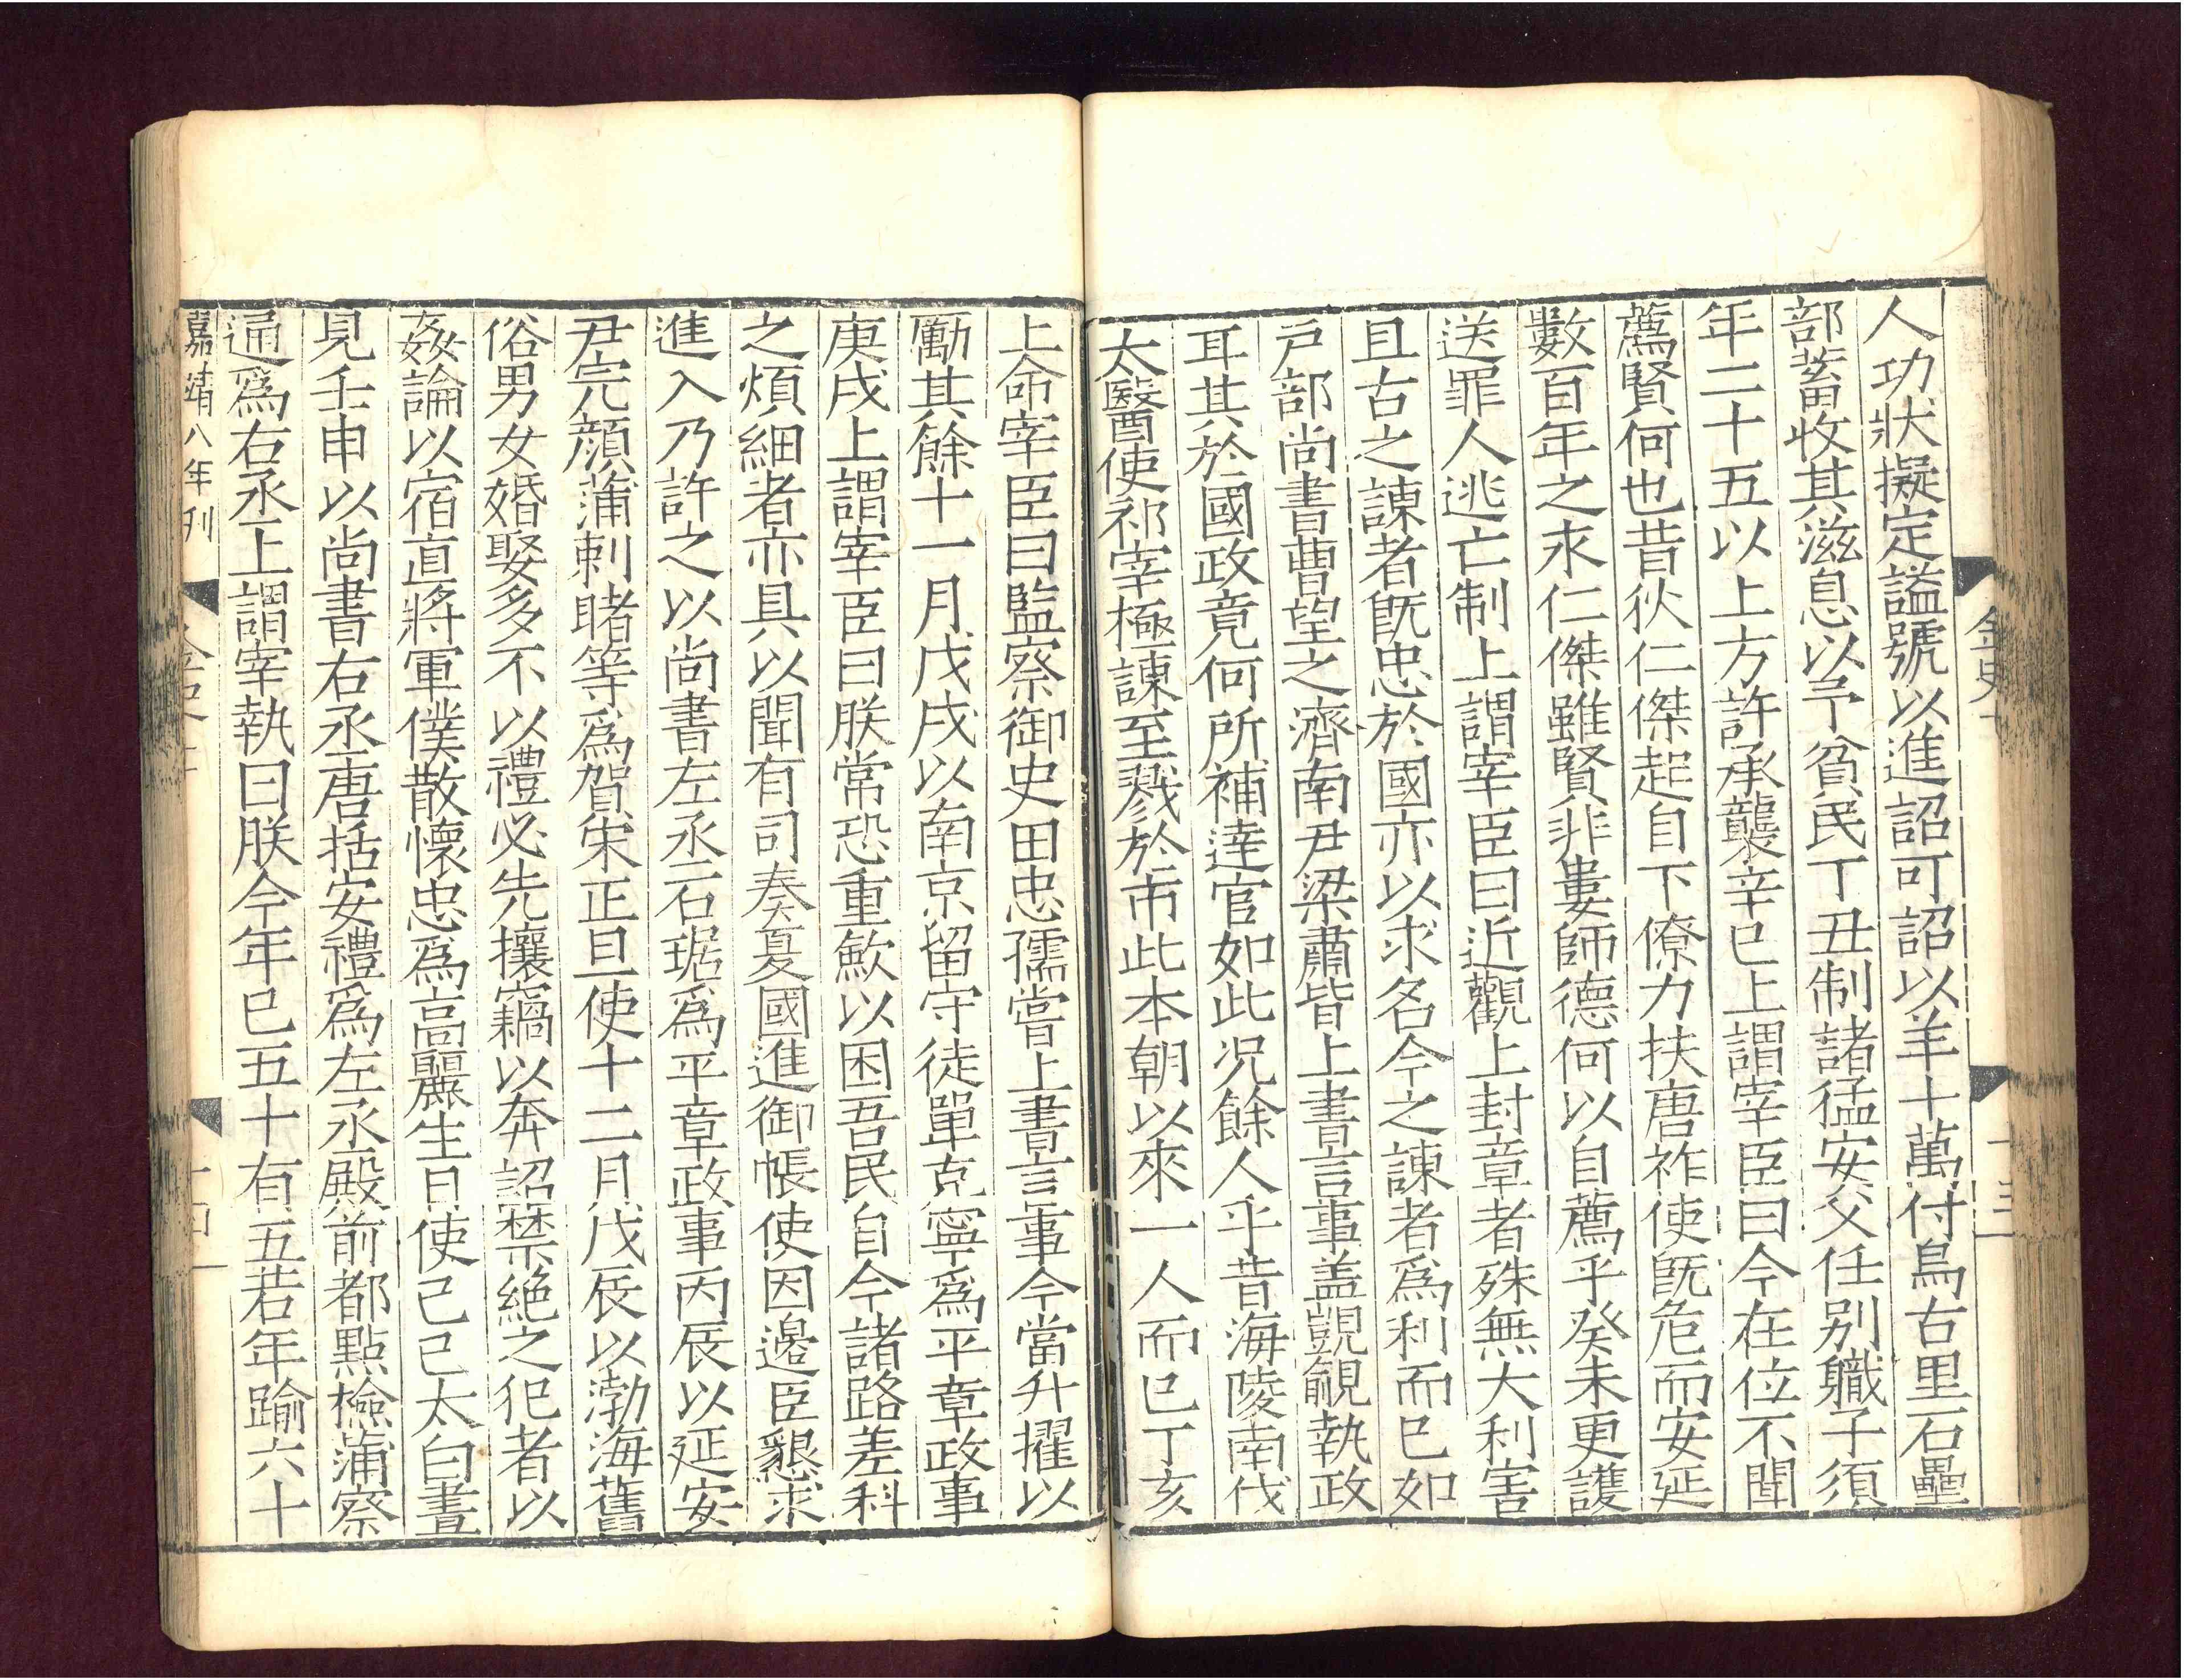 人功狀擬定謚號以進詔可詔以羊十萬付烏古里石壘
部蓄收其滋息以予貧民丁丑制諸猛安父任別職子須
年二十五以上方許承襲辛巳上謂宰臣曰今在位不聞
薦賢何也昔狄仁傑起自下僚力扶唐祚使旣危而安延
數百年之永仁傑雖賢非婁師德何以自薦乎癸未更護
送罪人逃亡制上謂宰臣曰近觀上封章者殊無大利害
且古之諫者旣忠於國亦以求名今之諫者爲利而已如
戸部尚書曹望之濟南尹梁肅皆上書言事蓋覬覦執政
耳其於國政竟何所補達官如此况餘人乎昔海陵南伐
太醫使祁宰極諫至戮於市此本朝以來一人而已丁亥
金史
十三
上命宰臣曰監察御史田忠孺嘗上書言事今當升擢以
勵其餘十一月戊戌以南京留守徒單克寧爲平章政事
庚戌上謂宰臣曰朕常恐重斂以困吾民自今諸路差科
之煩細者亦具以聞有司奏夏國進御帳使因邊臣懇求
進入乃許之以尚書左丞石琚爲平章政事丙辰以延安
尹完顔蒲剌睹等爲賀宋正旦使十二月戊辰以渤海舊
俗男女婚娶多不以禮必先攘竊以奔詔禁絶之犯者以
姦論以宿直將軍僕散懷忠爲高麗生日使己巳太白晝
見壬申以尚書右丞唐括安禮爲左丞殿前都點檢蒲察
通爲右丞上謂宰執曰朕今年已五十有五若年踰六十
嘉靖八年刊
十四